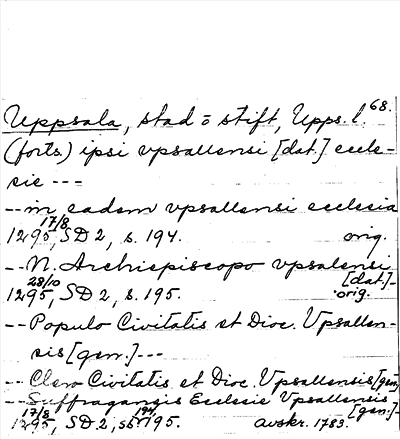 68.
Uppsala, stad o stift, Upps. l.
(forts.) ipsi vpsallensi [dat.] eccle-
sie ---
-- in eadem vpsallensi ecclesia
17/8
1295, SD 2, s. 194. orig.
-- N. Archiepiscopo vpsalensi
[dat.]-
28/10
1295, SD 2, s. 195. orig.
-- Populo Civitatis et Dioc. Vpsallen-
sis [gen.] ---
-- Clero Civitatis et Dioc. Vpsallensis [gen.]
-- Suffraganeis Ecclesie Vpsallensis
[gen.]-
17/8 194,
1295, SD 2, s. 195. avskr. 1783.